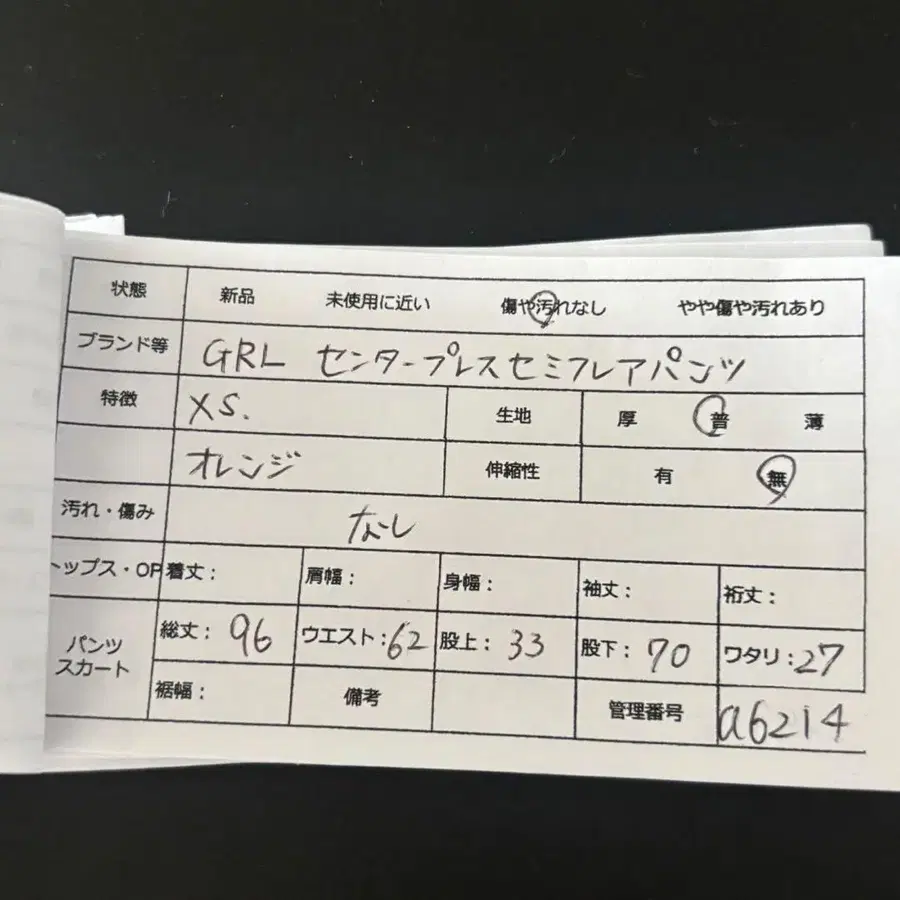 状態 新品 未使用に近い 傷や汚れなし やや傷や汚れあり
ブランド等 GRL センタープレスセミフレアパンツ
特徴 XS. 生地 厚 普 薄
オレンジ 伸縮性 有 無
汚れ・傷み なし
トップス・OP 着丈: 肩幅: 身幅: 袖丈: 裄丈:
パンツ スカート 総丈: 96 ウエスト: 62 股上: 33 股下: 70 ワタリ: 27
裾幅: 備考 管理番号 a6214